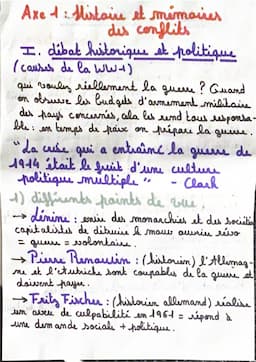 Axe 1 : Histoire et mémoires
des conflits
I. débat historique et politique
(causes de la WW1)
qui voulez réellement la guerre ? Quand
on observe les budgets d'armement militaire
des pays concernés, ala les rend tous responsa-
ble : en temps de paix on prépare la guerre.
"La crise qui a entraîné la guerre de
1914 était le fruit d'une culture
politique multiple" - Clark
1) différents points de vue.
→ Lénine : envie des monarchies et des sociétés
capitalistes de détruire le mouv ouvrier révo
= guerre = volontaire.
→ Pierre Renouvin : (historien) l'Allemag-
ne et l'Autriche sont coupables de la guerre et
doivent payer.
→ Fritz Fischer : (historien allemand) réalise
un aveu de culpabilité en 1961 = répond à
une demande sociale + politique.